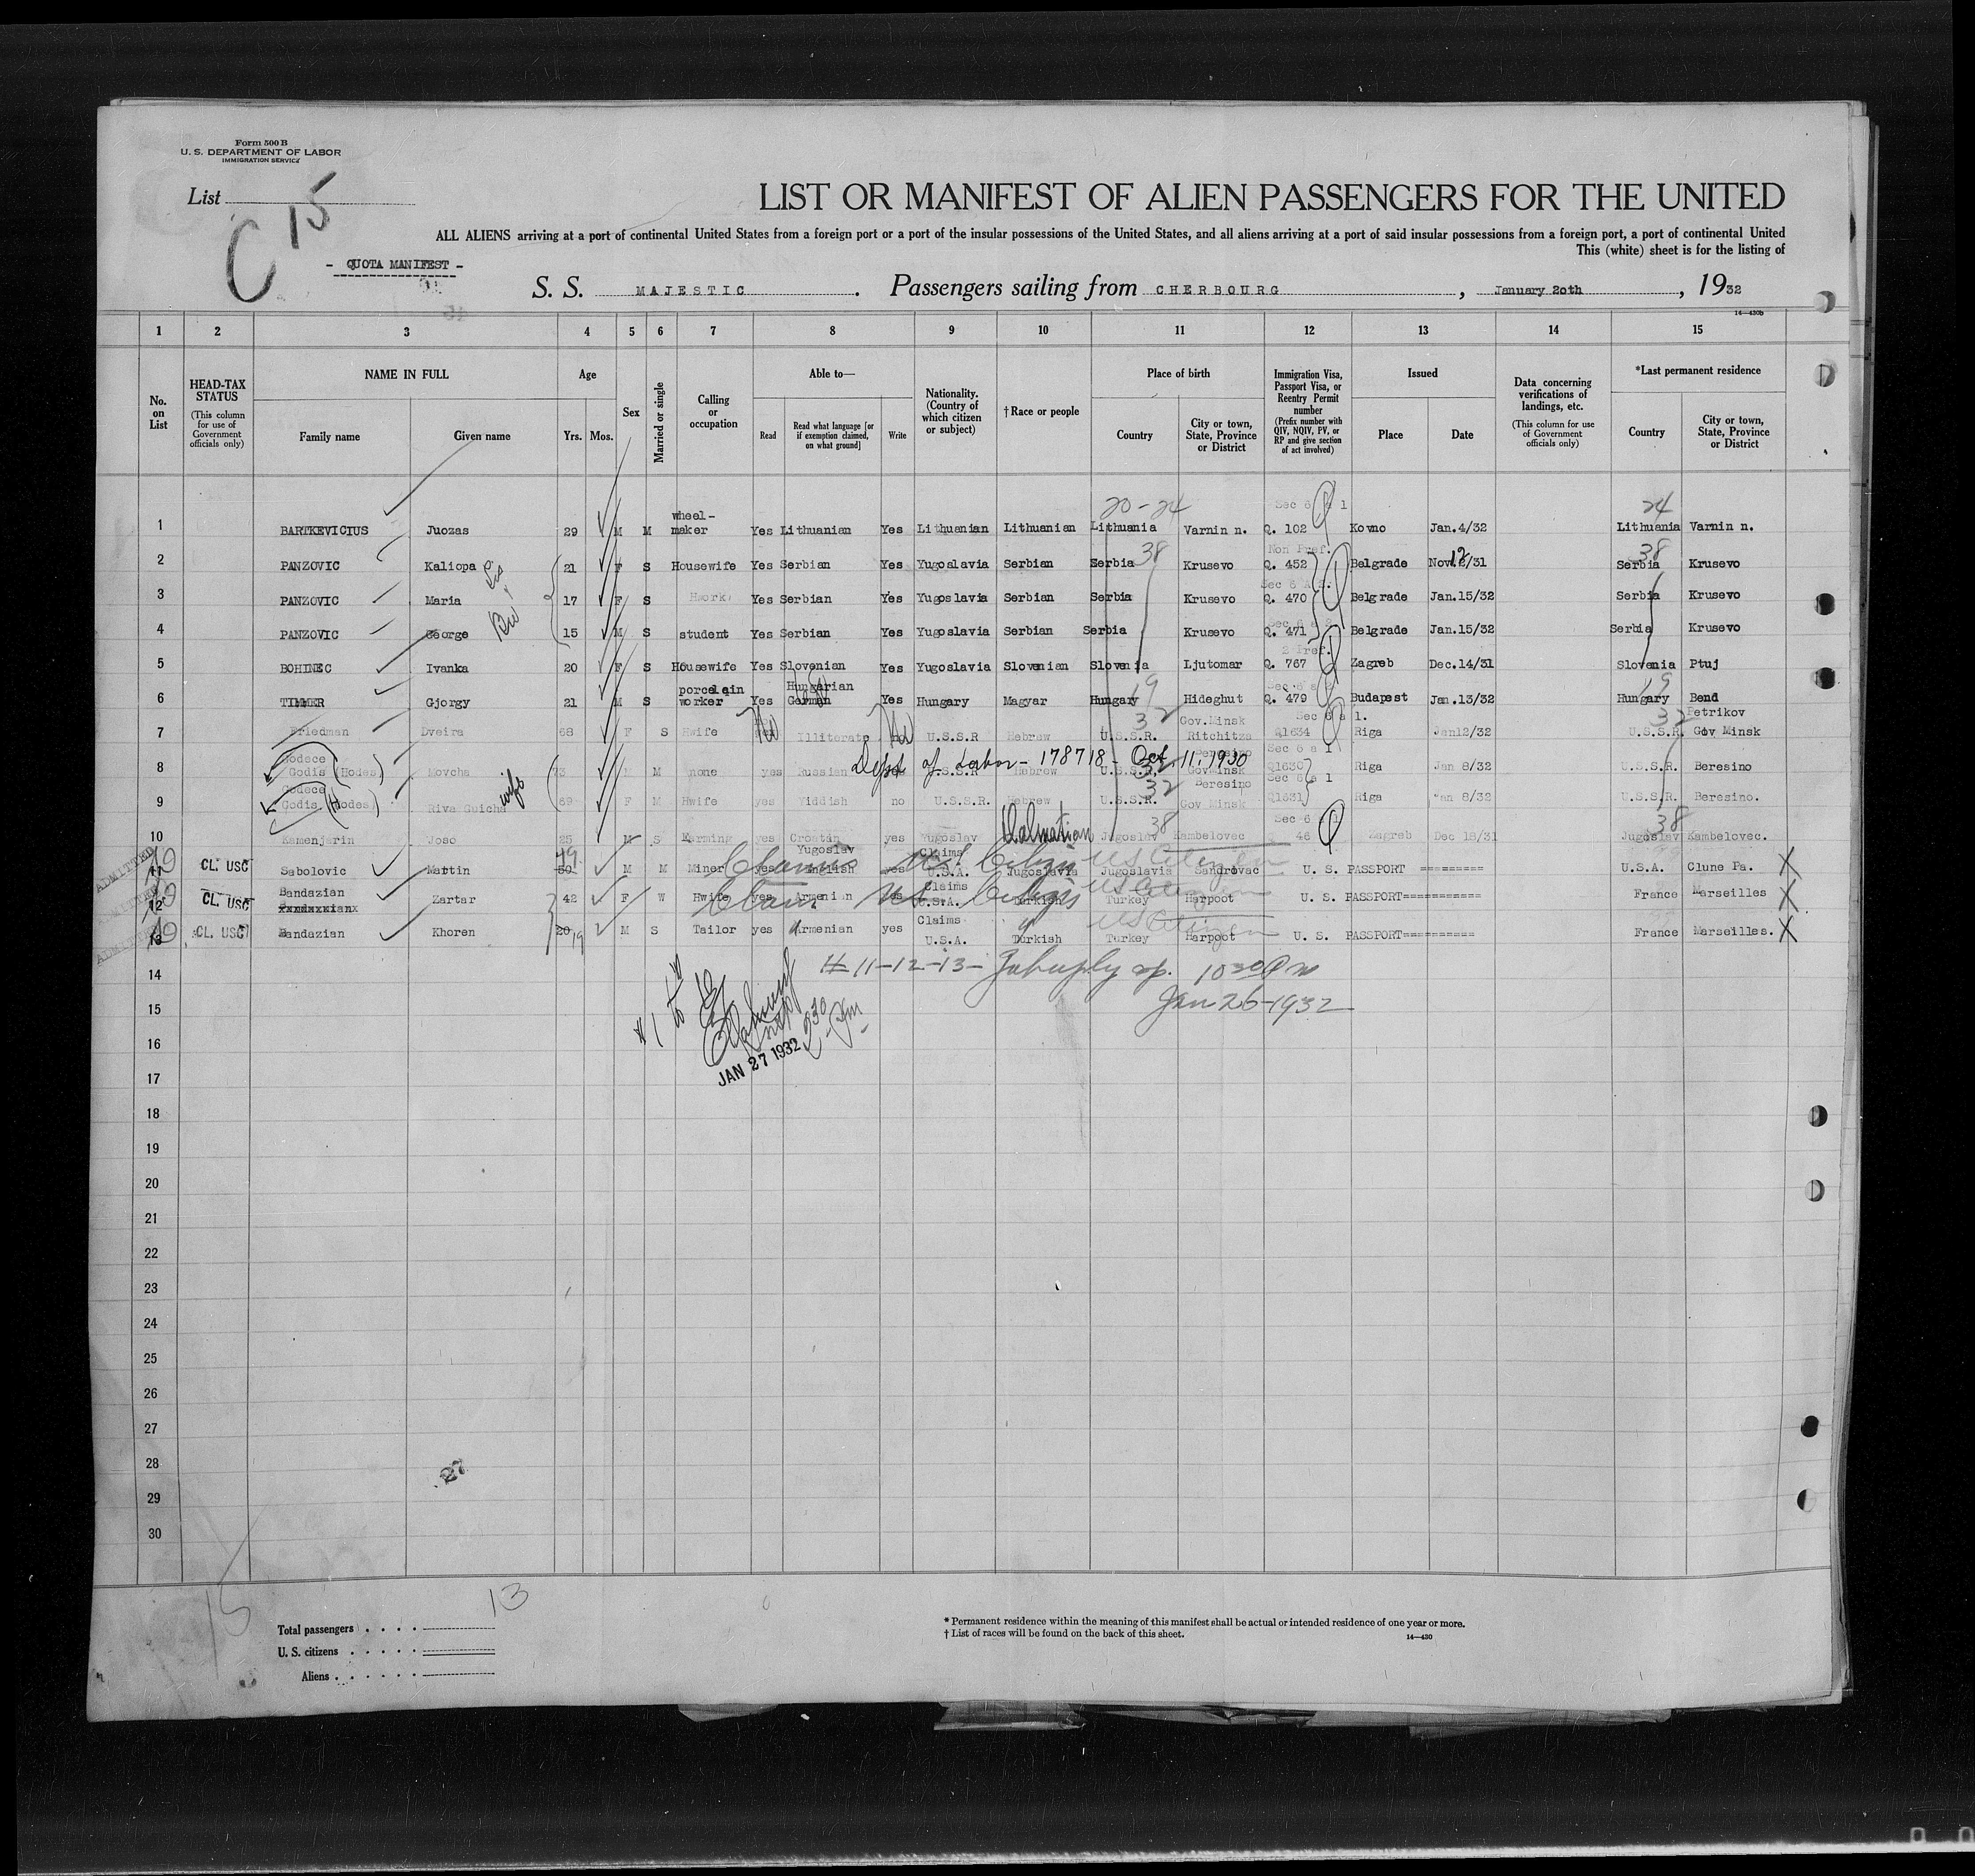 Form 500 B
U. S. DEPARTMENT OF LABOR
IMMIGRATION SERVICE
List
C 15
LIST OR MANIFEST OF ALIEN PASSENGERS FOR THE UNITED
ALL ALIENS arriving at a port of continental United States from a foreign port or a port of the insular possessions of the United States, and all aliens arriving at a port of said insular possessions from a foreign port, a port of continental United
This (white) sheet is for the listing of
- QUOTA MANIFEST -
S. S. MAJESTIC. Passengers sailing from CHERBOURG, January 20th, 1932
14—430b
1 2 3 4 5 6 7 8 9 10 11 12 13 14 15
No. on List
HEAD-TAX STATUS (This column for use of Government officials only)
NAME IN FULL Family name Given name
Age Yrs. Mos.
Sex
Married or single
Calling or occupation
Able to— Read Read what language [or if exemption claimed, on what ground] Write
Nationality. (Country of which citizen or subject)
†Race or people
Place of birth Country City or town, State, Province or District
Immigration Visa, Passport Visa, or Reentry Permit number (Prefix number with QIV, NQIV, PV, or RP and give section of act involved)
Issued Place Date
Data concerning verifications of landings, etc. (This column for use of Government officials only)
*Last permanent residence Country City or town, State, Province or District
20-24 Sec 6 a 1 24
1 BARTKEVICIUS Juozas 29 M M wheel-maker Yes Lithuanian Yes Lithuanian Lithuanian Lithuania Varnin n. Q. 102 Kovno Jan.4/32 Lithuania Varnin n.
38 Non Pref. 38
2 PANZOVIC Kaliopa 21 F S Housewife Yes Serbian Yes Yugoslavia Serbian Serbia Krusevo Q. 452 Belgrade Nov.12/31 Serbia Krusevo
3 PANZOVIC Maria 17 F S Hwork Yes Serbian Yes Yugoslavia Serbian Serbia Krusevo Q. 470 Belgrade Jan.15/32 Serbia Krusevo
4 PANZOVIC George 15 M S student Yes Serbian Yes Yugoslavia Serbian Serbia Krusevo Q. 471 Belgrade Jan.15/32 Serbia Krusevo
5 BOHINEC Ivanka 20 F S Housewife Yes Slovenian Yes Yugoslavia Slovenian Slovenia Ljutomar Q. 767 Zagreb Dec.14/31 Slovenia Ptuj
6 TIMMER Gjorgy 21 M S porcelain worker Yes Hungarian German Yes Hungary Magyar Hungary 19 Hideghut Q. 479 Budapest Jan.13/32 Hungary 19 Bend
7 Friedman Dveira 68 F S Hwife No Illiterate No U.S.S.R Hebrew U.S.S.R. 32 Gov.Minsk Ritchitza Sec 6 a 1. Q1634 Riga Jan12/32 U.S.S.R. 32 Petrikov Gov Minsk
Dept of Labor - 178718 - Oct. 11. 1930
8 Godis (Hodes) Movcha 73 M none yes Russian U.S.S.R Hebrew U.S.S.R. 32 Beresino Gov Minsk Sec 6 a 1 Q1630 Riga Jan 8/32 U.S.S.R. Beresino
9 Godis (Hodes) Riva Guicha wife 69 F M Hwife yes Yiddish no U.S.S.R. Hebrew U.S.S.R. 32 Beresino Gov Minsk Sec 6 a 1 Q1631 Riga Jan 8/32 U.S.S.R. Beresino.
10 Kamenjarin Joso 25 M S Farming yes Croatan yes Yugoslav Dalmatian Jugoslav 38 Kambelovec Sec 6 a 1 46 Zagreb Dec 18/31 Jugoslav 38 Kambelovec.
ADMITTED
11 CL. USC Sabolovic Mattin 49 M M Miner yes Yugoslav English yes Claims U.S.A. Jugoslavia Jugoslavia Sandrovac U. S. PASSPORT ========= U.S.A. Clune Pa. X
Claims US Citizen
12 CL. USC Bandazian Zartar 42 F W Hwife yes Armenian Claims U.S.A. Turkish Turkey Harpoot U. S. PASSPORT=========== France Marseilles X
US Citizen
13 CL. USC Bandazian Khoren 20 19 M S Tailor yes Armenian yes Claims U.S.A. Turkish Turkey Harpoot U. S. PASSPORT========== France Marseilles. X
US Citizen
14
# 11-12-13- 10 30 Pm
15
Jan 26-1932
#1 to 10
JAN 27 1932
2 30 pm
16
17
18
19
20
21
22
23
24
25
26
27
28
27
29
30
15
13
Total passengers
U. S. citizens
Aliens
* Permanent residence within the meaning of this manifest shall be actual or intended residence of one year or more.
† List of races will be found on the back of this sheet.
14—430